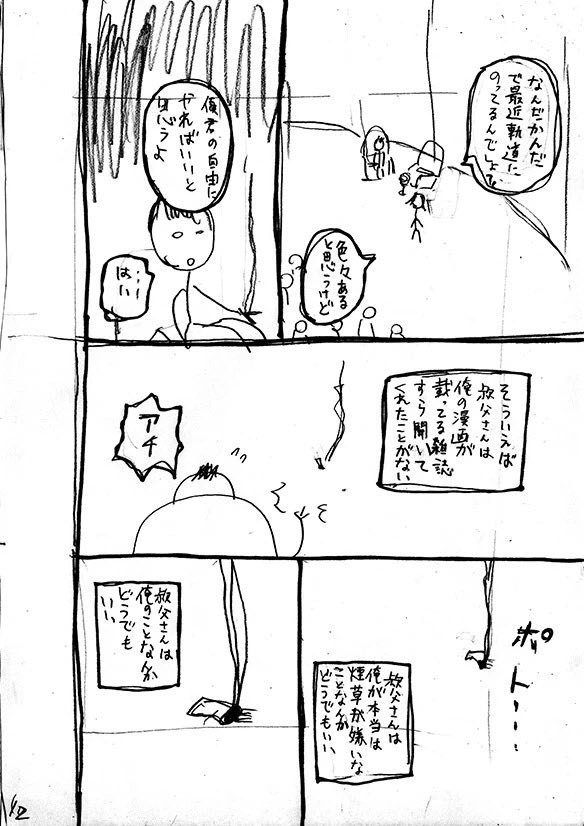 なんだかんだ
で最近軌道に
のってるんでしょ?
色々ある
と思うけど
俊君の自由に
やればいいと
思うよ
…
はい
そういえば
叔父さんは
俺の漫画が
載ってる雑誌
すら開いて
くれたことがない
アチ
ポト…
叔父さんは
俺が本当は
煙草が嫌いな
ことなんか
どうでもいい
叔父さんは
俺のことなんか
どうでも
いい